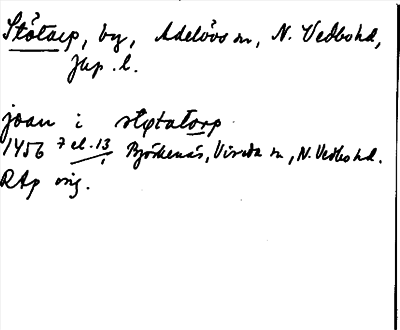 Stötarp, by, Adelövs sn, N. Vedbo hd,
Jkp. l.
joan i støtatorp
1456 7 el. 13/1 Björkenäs, Vireda sn, N. Vedbo hd.
RAp orig.